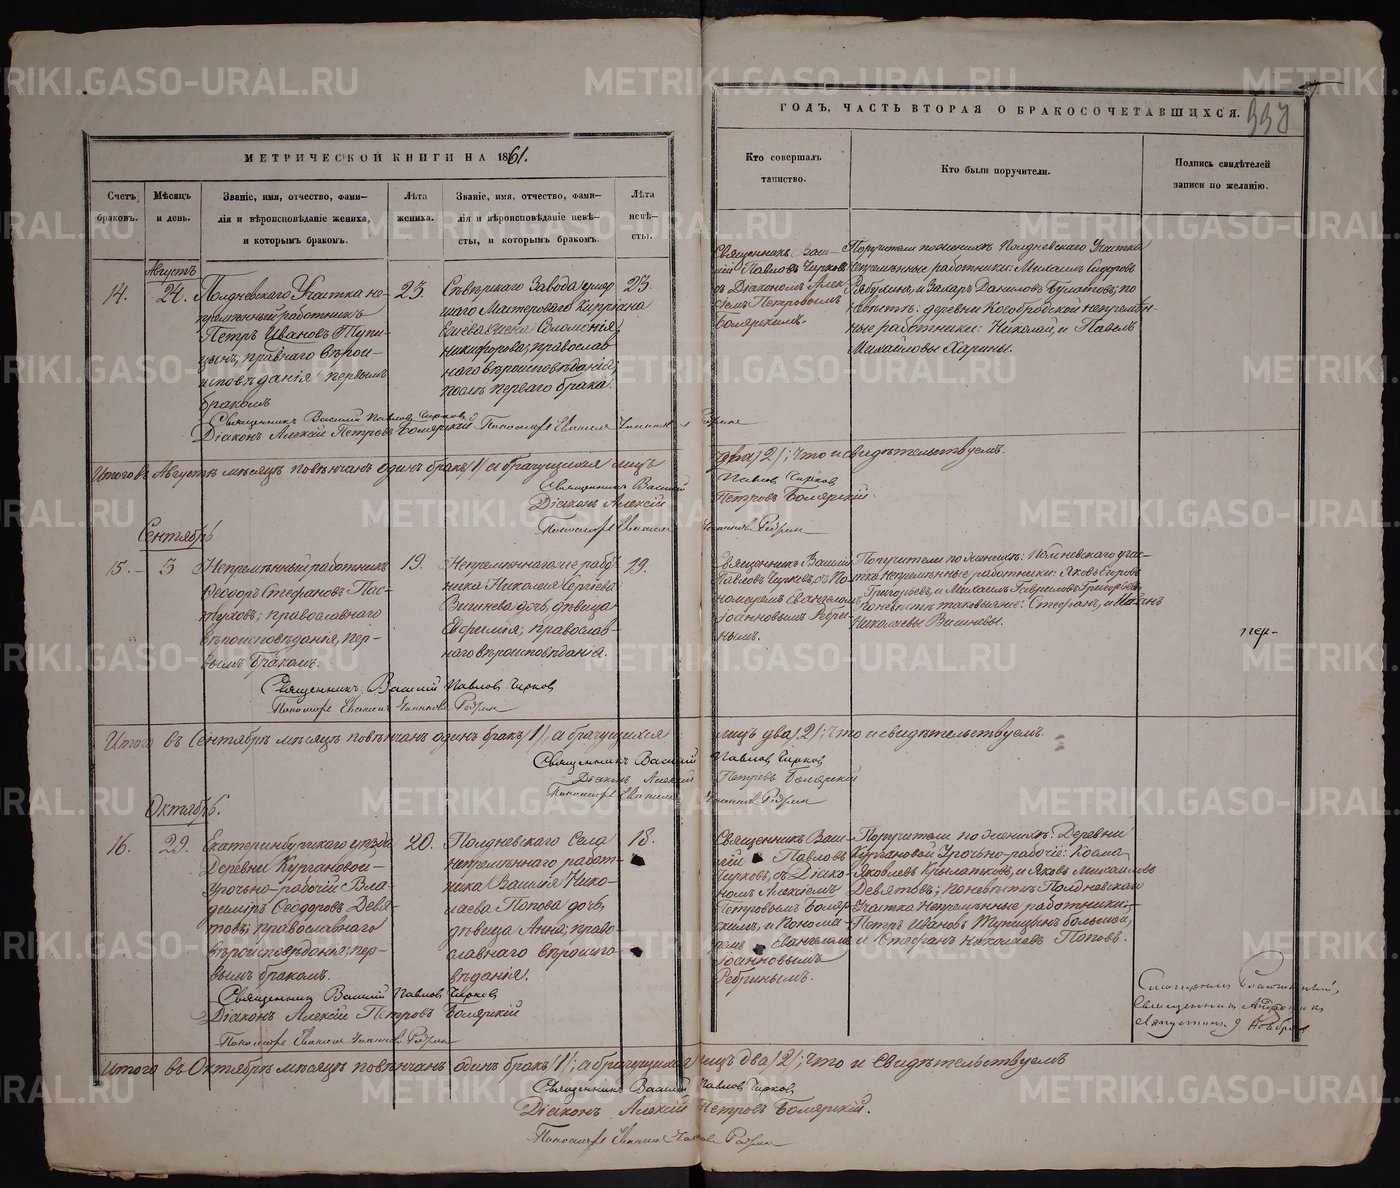 МЕТРИЧЕСКОЙ КНИГИ НА 1861.
ГОДЪ, ЧАСТЬ ВТОРАЯ О БРАКОСОЧЕТАВШИХСЯ.
Счетъ браковъ.
Мѣсяцъ и день.
Званіе, имя, отчество, фами-
лія и вѣроисповѣданіе жениха,
и которымъ бракомъ.
Лѣта
жениха.
Званіе, имя, отчество, фами-
лія и вѣроисповѣданіе невѣ-
сты, и которымъ бракомъ.
Лѣта
невѣ-
сты.
Кто совершалъ
таинство.
Кто были поручители.
Подпись свидѣтелей
записи по желанію.
Августъ
14.
24.
Полдневскаго Участка не-
премѣнный работникъ
Петръ Ивановъ Тупи-
цынъ; правнаго вѣрои-
исповѣданія первымъ
бракомъ
23.
Сѣверскаго Завода умер
шаго Мастероваго Кипріана
Соломонія
Никифорова; православ-
наго вѣроисповѣданія,
послѣ перваго брака.
23.
Священникъ Васи-
лій Павловъ Чирковъ
съ Діакономъ Алек-
сѣемъ Петровымъ
Бомярскимъ.
Поручители по женихѣ Полдневскаго Участка
непремѣнные работники: Михаилъ Сидоровъ
и Захаръ Даниловъ по
невѣстѣ: деревни Кособродской непремѣн-
ные работники: Николай и Павелъ
Михайловы Харины.
Священникъ Василій Павловъ Чирковъ
Діаконъ Алексій Петровъ Бомярскій
Итого въ Августѣ мѣсяцѣ повѣнчанъ одинъ бракъ /1/, а брачущихся лицъ
два /2/; что и свидѣтельствуемъ.
Священникъ Василій Павловъ Чирковъ
Діаконъ Алексій Петровъ Бомярскій.
Сентябрь
15.
3
Непремѣнный работникъ
Ѳеодоръ Стефановъ Пас-
туховъ; православнаго
вѣроисповѣданія, пер-
вымъ бракомъ.
19.
Непремѣннаго рабо-
ника Николая Сергѣева
Вишнева дочь, дѣвица
Евфимія; православ-
наго вѣроисповѣданія.
19.
Священникъ Василій
Павловъ Чирковъ, съ По-
номаремъ Евангеломъ
Іоанновымъ Ребри-
нымъ.
Поручители по женихѣ: Полдневскаго учас-
тка непремѣнные работники: Яковъ Егоровъ
Григорьевъ, и Михаилъ Гавриловъ Григорьевъ
по невѣстѣ таковые же: Стефанъ, и
Николаевы Вишневы.
пер-
Священникъ Василій Павловъ Чирковъ
Итого въ Сентябрѣ мѣсяцѣ повѣнчанъ одинъ бракъ /1/, а брачущихся
лицъ два /2/; что и свидѣтельствуемъ.
Священникъ Василій Павловъ Чирковъ
Діаконъ Алексій Петровъ Бомярскій
Октябрь.
16.
29.
Екатеринбургскаго уѣзда
Деревни Кургановой
урочно-рабочій Вла-
диміръ Ѳеодоровъ Девя-
товъ; православнаго
вѣроисповѣданія, пер-
вымъ бракомъ.
20.
Полдневскаго Села
непремѣннаго работ-
ника Василія Нико-
лаева Попова дочь,
дѣвица Анна; право-
славнаго вѣроиспо-
вѣданія.
18.
Священникъ Васи-
лій Павловъ
Чирковъ, съ Діако-
номъ Алексіемъ
Петровымъ Бомяр-
скимъ, и Понома-
ремъ Евангеломъ
Іоанновымъ
Ребринымъ.
Поручители по женихѣ: Деревни
Кургановой Урочно-рабочіе: Косма
Яковлевъ Крылатковъ, и Яковъ Михаиловъ
Девятовъ; по невѣстѣ Полдневскаго
Участка Непремѣнные работники:
Петръ Ивановъ Тупицынъ большой,
и Стефанъ Николаевъ Поповъ.
Священникъ Василій Павловъ Чирковъ
Діаконъ Алексій Петровъ Бомярскій
Итого въ Октябрѣ мѣсяцѣ повѣнчанъ одинъ бракъ /1/; а брачущихся лицъ два /2/; что и свидѣтельствуемъ
Священникъ Василій Павловъ Чирковъ
Діаконъ Алексій Петровъ Бомярскій.
METRIKI.GASO-URAL.RU